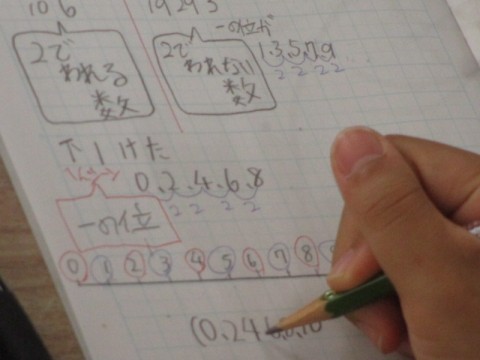 106
19293
2で
われる
数
2で
われない
数
一の位が
1,3,5,7,9
2 2 2 2
下1けた
0,2,4,6,8
2 2 2 2
一の位
0 1 2 3 4 5 6 7 8
(0,2,4